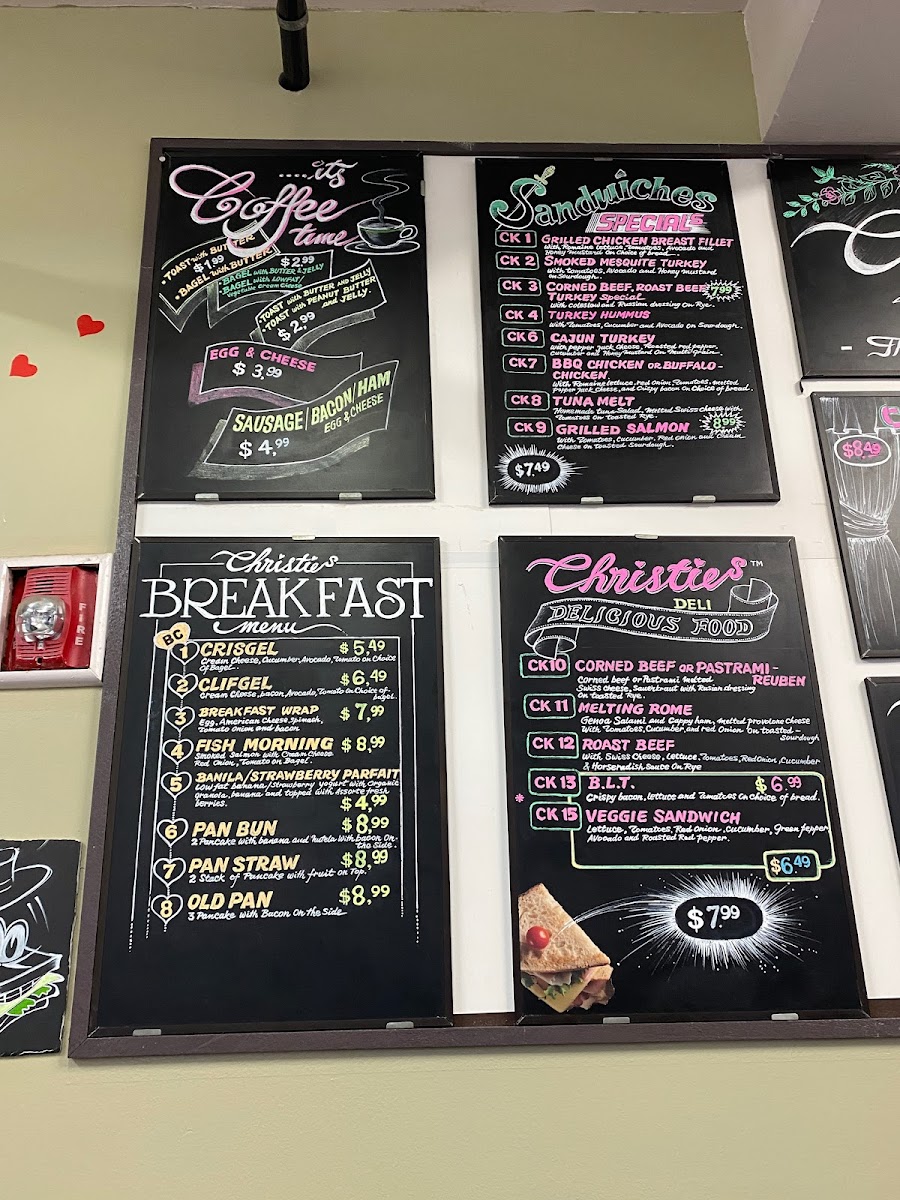 .....its
Coffee
time
• TOAST with BUTTER
$1.99
• BAGEL with BUTTER
$2.99
• BAGEL with BUTTER & JELLY
• BAGEL with LOWFAT/
Vegetable Cream Cheese
• TOAST with BUTTER and JELLY
• TOAST with PEANUT BUTTER
and JELLY.
$2.99
EGG & CHEESE
$3.99
SAUSAGE/BACON/HAM
EGG & CHEESE
$4.99
Sandwiches
SPECIALS
CK 1 GRILLED CHICKEN BREAST FILLET
With Romaine lettuce, Tomatoes, Avocado and
Honey Mustard on Choice of bread.
CK 2 SMOKED MESQUITE TURKEY
with tomatoes, Avocado and Honey mustard
on Sourdough.
CK 3 CORNED BEEF, ROAST BEEF 7.99
TURKEY Special
with coleslow and Russian dressing on Rye.
CK 4 TURKEY HUMMUS
With Tomatoes, Cucumber and Avocado on Sourdough.
CK6 CAJUN TURKEY
with pepper jack cheese, Roasted red pepper,
cucumber and Honey mustard On Multi-Grain.
CK7 BBQ CHICKEN OR BUFFALO-
CHICKEN
With Romaine lettuce, red onion, Tomatoes, melted
Pepper Jack Cheese, and Crispy bacon on Choice of bread.
CK 8 TUNA MELT
Homemade tuna Salad, Melted Swiss cheese with
Tomatoes on Toasted Rye.
CK 9 GRILLED SALMON 8.99
With Tomatoes, Cucumber, Red onion and Cream
Cheese on toasted Sourdough.
$7.49
$8.49
Christies
BREAKFAST
menu
BC
1 CRISGEL $5.49
Cream Cheese, Cucumber, Avocado, Tomato on Choice
of Bagel.
2 CLIFGEL $6.49
Cream Cheese, bacon, Avocado, Tomato on Choice of
bagel.
3 BREAKFAST WRAP $7.99
Egg, American Cheese, Spinach,
Tomato onion and bacon
4 FISH MORNING $8.99
Smoked Salmon with Cream Cheese
Red Onion, Tomato on Bagel.
5 BANILA/STRAWBERRY PARFAIT
Lowfat banana/Strawberry yogurt with Organic
Granola, banana and topped with Assorte fresh
berries.
$4.99
6 PAN BUN $8.99
2 Pancake with banana and Nutela with bacon On
the Side.
7 PAN STRAW $8.99
2 Stack of Pancake with fruit on Top.
8 OLD PAN $8.99
3 Pancake with Bacon On the Side
Christies™
DELI
DELICIOUS FOOD
CK10 CORNED BEEF OR PASTRAMI-
REUBEN
Corned beef or Pastrami melted
Swiss cheese, Sauerkraut with Rusian dressing
on toasted Rye.
CK 11 MELTING ROME
Genoa Salami and Cappy ham, melted provolone Cheese
With Tomatoes, Cucumber, and red Onion on toasted-
Sourdough
CK 12 ROAST BEEF
With Swiss Cheese, Lettuce, Tomatoes, Red Onion, Cucumber
& Horseredish Sauce On Rye
CK 13 B.L.T. $6.99
Crispy bacon, lettuce and Tomatoes on Choice of bread.
CK 15 VEGGIE SANDWICH
Lettuce, Tomatoes, Red Onion, Cucumber, Green pepper
Avocado and Roasted Red pepper.
$6.49
$7.99
FIRE